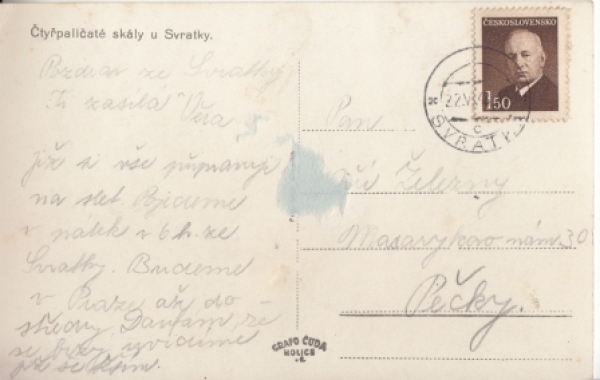 Čtyřpaličaté skály u Svratky.
Pozdrav ze Svratky
Ti zasílá Věra
Již se vše připravuji
na slet. Pojedeme
v pátek v 6 h. ze
Svratky. Budeme
v Praze až do
středy. Doufám, že
se brzy uvidíme
již se těším.
ČESKOSLOVENSKO
1·50
22.VI
SVRATKA
c
Pan
Jiří Železný
Masarykovo nám. 30
Pečky.
GRAFO ČUDA
HOLICE